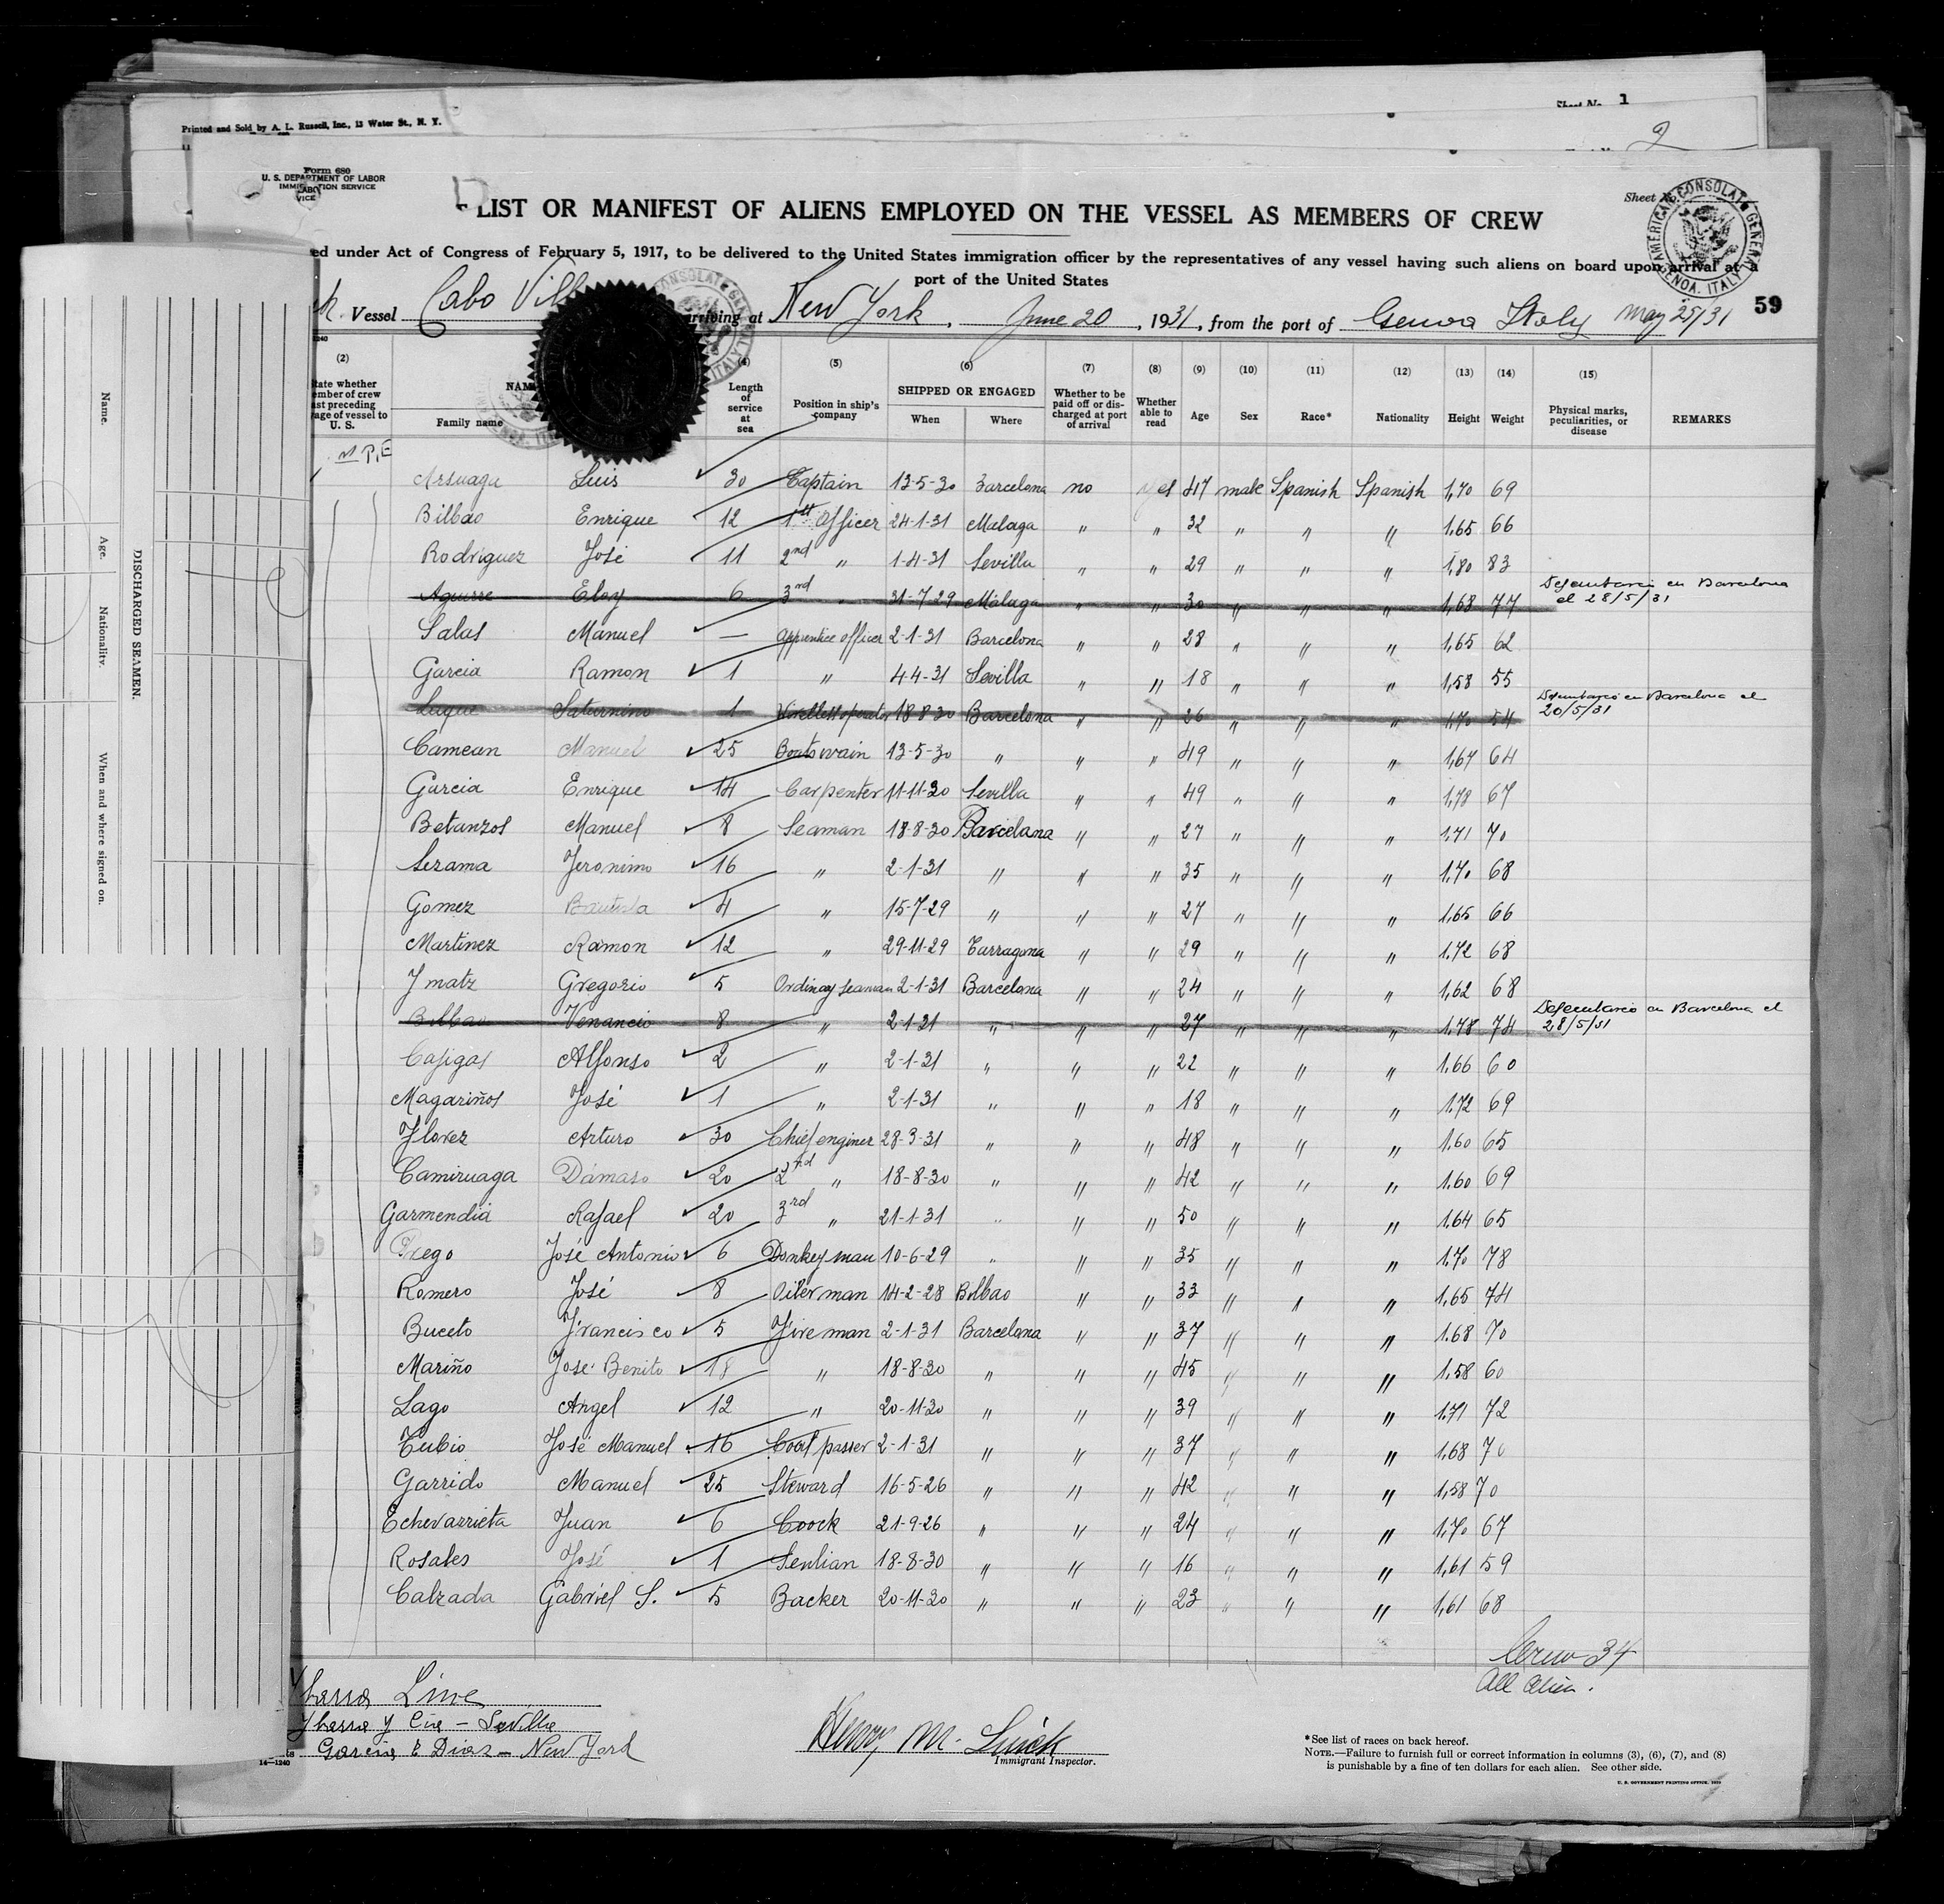 Sheet No. 1
Printed and Sold by A. L. Russell, Inc., 13 Water St., N. Y.
2
Form 680
U. S. DEPARTMENT OF LABOR
IMMIGRATION SERVICE
Sheet No.
AMERICAN CONSULATE GENERAL
GENOA, ITALY
LIST OR MANIFEST OF ALIENS EMPLOYED ON THE VESSEL AS MEMBERS OF CREW
ed under Act of Congress of February 5, 1917, to be delivered to the United States immigration officer by the representatives of any vessel having such aliens on board upon arrival at a
port of the United States
Vessel Cabo Vill arriving at New York, June 20, 1931, from the port of Genoa Italy May 25/31 59
(2) (4) (5) (6) (7) (8) (9) (10) (11) (12) (13) (14) (15)
State whether member of crew last preceding voyage of vessel to U. S. NAM Family name Length of service at sea Position in ship's company SHIPPED OR ENGAGED When Where Whether to be paid off or discharged at port of arrival Whether able to read Age Sex Race* Nationality Height Weight Physical marks, peculiarities, or disease REMARKS
Arsuaga Luis 30 Captain 13-5-30 Barcelona no yes 47 male Spanish Spanish 1,70 69
Bilbao Enrique 12 1st Officer 24-1-31 Malaga " " 32 " " " 1,65 66
Rodriguez José 11 2nd " 1-4-31 Sevilla " " 29 " " " 1,80 83
Aguirre Eloy 6 3rd " 31-7-29 Málaga " " 30 " " " 1,68 77 Desembarco en Barcelona el 28/5/31
Salas Manuel — Apprentice officer 2-1-31 Barcelona " " 28 " " " 1,65 62
Garcia Ramon 1 " 4-4-31 Sevilla " " 18 " " " 1,58 55
Luque Saturnino 1 Wirelless operator 18-8-30 Barcelona " " 26 " " " 1,70 54 Desembarco en Barcelona el 20/5/31
Camean Manuel 25 Boatswain 13-5-30 " " " 49 " " " 1,67 64
Garcia Enrique 14 Carpenter 11-11-30 Sevilla " " 49 " " " 1,78 67
Betanzos Manuel 8 Seaman 18-8-30 Barcelona " " 27 " " " 1,71 70
Lezama Jeronimo 16 " 2-1-31 " " " 35 " " " 1,70 68
Gomez Bautista 4 " 15-7-29 " " " 27 " " " 1,65 66
Martinez Ramon 12 " 29-11-29 Tarragona " " 29 " " " 1,72 68
Ymatz Gregorio 5 Ordinay seaman 2-1-31 Barcelona " " 24 " " " 1,62 68
Bilbao Venancio 8 " 2-1-31 " " " 27 " " " 1,78 74 Desembarco en Barcelona el 28/5/31
Casigas Alfonso 2 " 2-1-31 " " " 22 " " " 1,66 60
Magariños José 1 " 2-1-31 " " " 18 " " " 1,72 69
Florez Arturo 30 Chief enginer 28-3-31 " " " 48 " " " 1.60 65
Camiruaga Dámaso 20 2nd " 18-8-30 " " " 42 " " " 1.60 69
Garmendia Rafael 20 3rd " 21-1-31 " " " 50 " " " 1.64 65
Prego José Antonio 6 Donkey man 10-6-29 " " " 35 " " " 1.70 78
Romero José 8 Oiler man 14-2-28 Bilbao " " 33 " " " 1,65 74
Buceto Francisco 5 Fire man 2-1-31 Barcelona " " 37 " " " 1.68 70
Mariño José Benito 18 " 18-8-30 " " " 45 " " " 1.58 60
Lago Angel 12 " 20-11-30 " " " 39 " " " 1.71 72
Tubio José Manuel 16 Coal passer 2-1-31 " " " 37 " " " 1,68 70
Garrido Manuel 25 Steward 16-5-26 " " " 42 " " " 1,58 70
Echevarrieta Juan 6 Coock 21-9-26 " " " 24 " " " 1,70 67
Rosales José 1 18-8-30 " " " 16 " " " 1,61 59
Calzada Gabriel S. 5 Backer 20-11-30 " " " 23 " " " 1,61 68
Crew 34
All alien.
Ybarra Line
Ybarra y Cia - Sevilla
Garcia & Diaz - New York
14—1240
Henry M.
Immigrant Inspector.
*See list of races on back hereof.
NOTE.—Failure to furnish full or correct information in columns (3), (6), (7), and (8)
is punishable by a fine of ten dollars for each alien. See other side.
U. S. GOVERNMENT PRINTING OFFICE
DISCHARGED SEAMEN.
Name. Age. Nationality. When and where signed on.